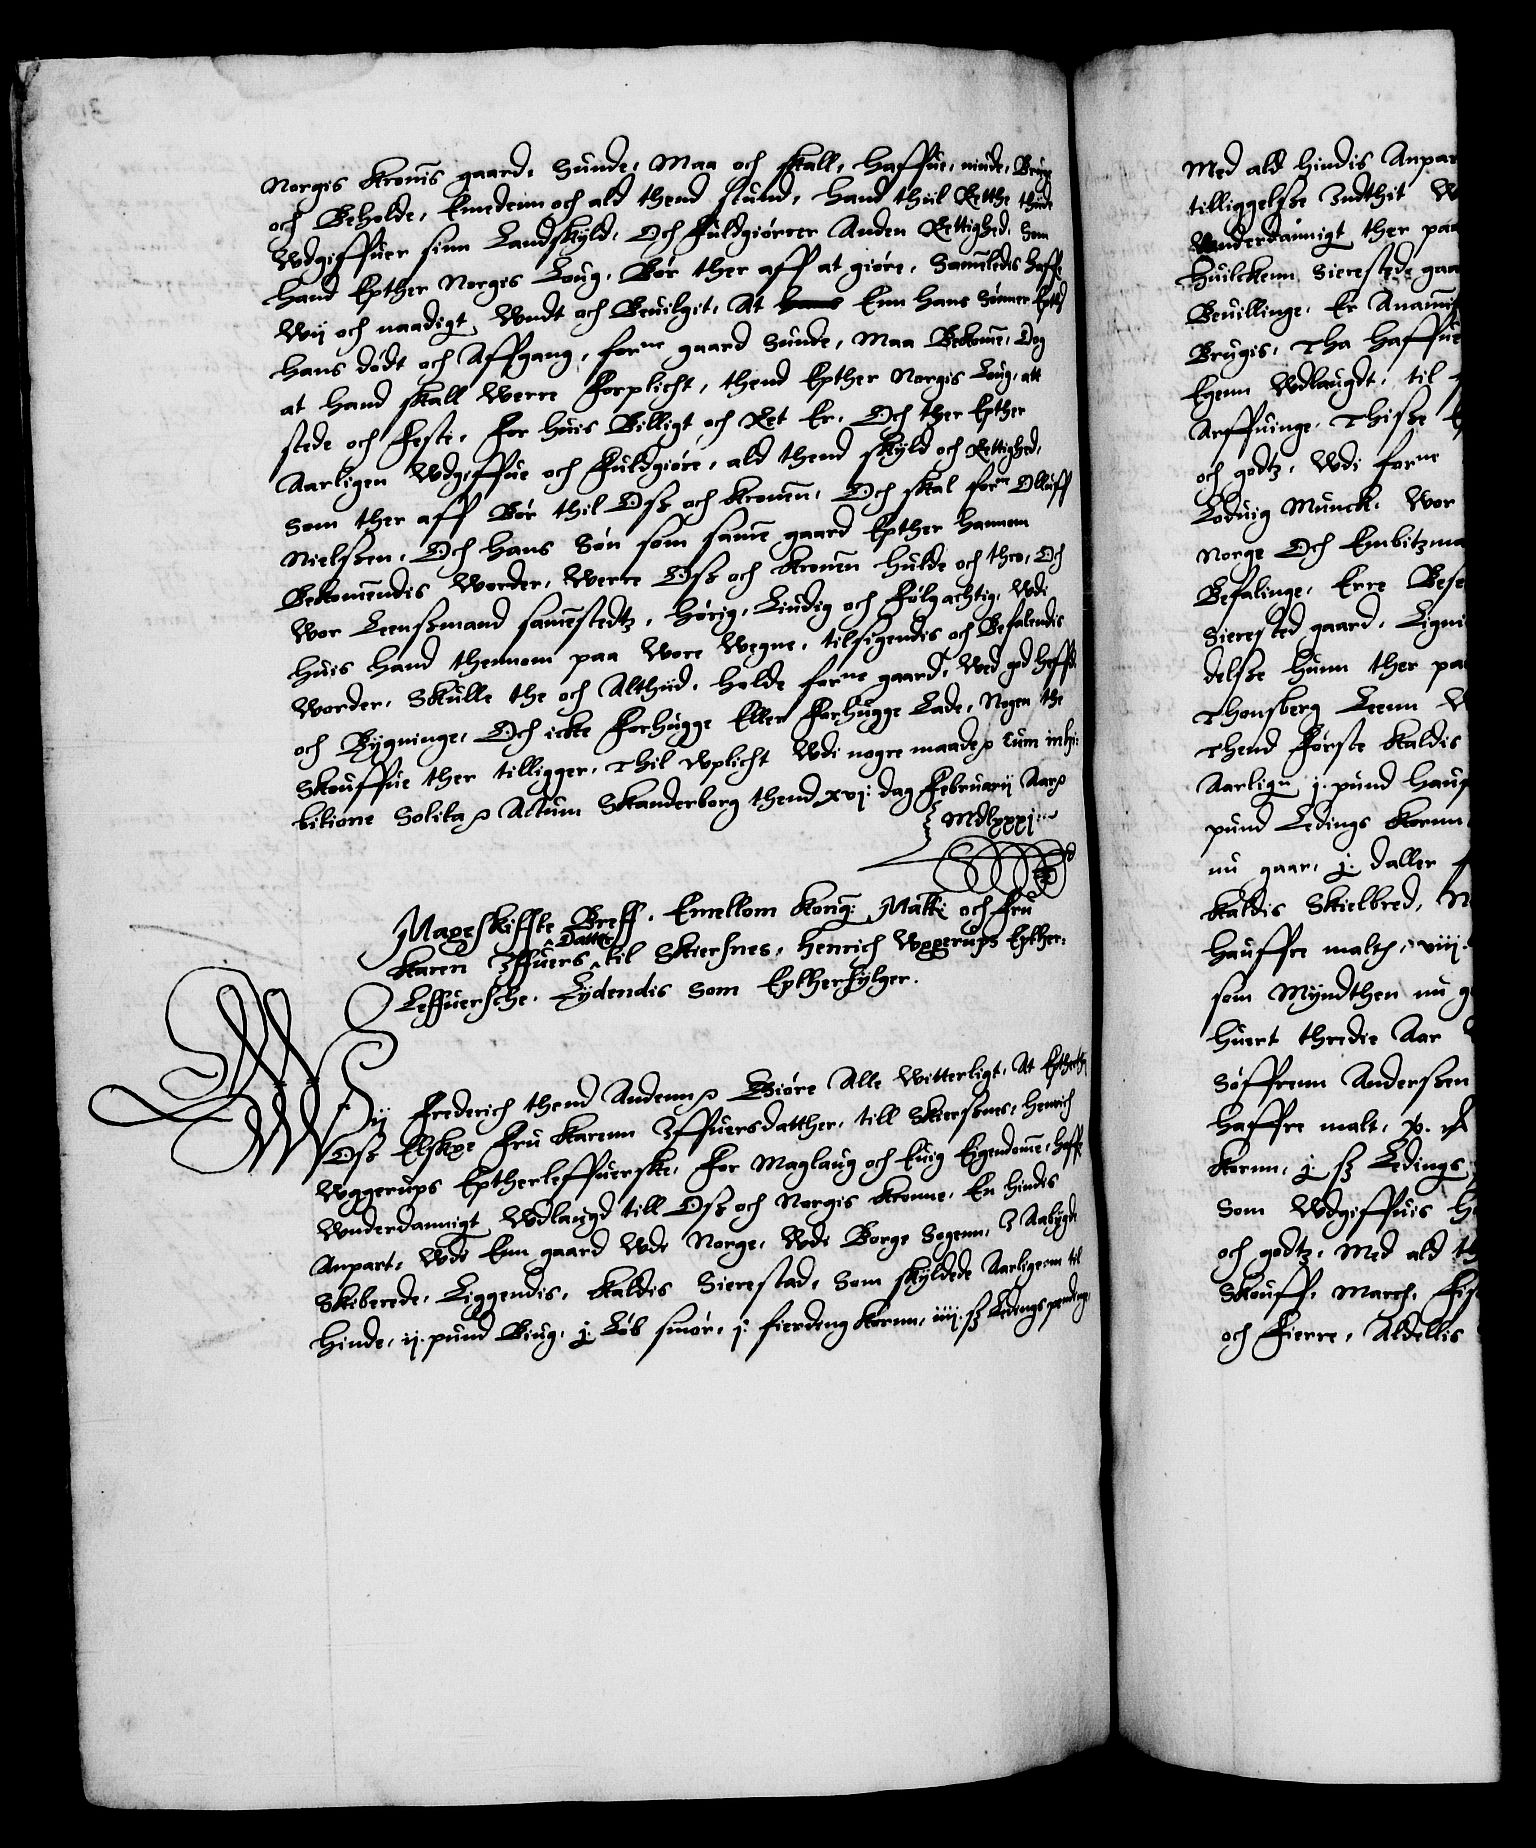 Norgis Kronis gaard, Sunde, Maa och skall, haffue, niude, Bruge
och Beholde, Emedenn och ald thend stund, hand thiil Retthe thiide
Wdgiffuer sinn Landskyld, Och Fuldgiører Anden Rettighed, Som
hand Epther Norges Loug, Bør ther aff at giøre, Sammeledis haffe
Wij och naadigt Wndt och Beuilgit, At Enn hans Sønner Epther
hans dødt och Affgang, forne gaard Sunde, Maa Bekomme, Dog
at hand skall Werre Forplicht, thend Epther Norgis Loug, att
stede och Feste, for huis Billigt och Ret Er, Och ther Epther
Aarligen Wdgiffue och Fuldgiøre, ald thend skyld och Rettighed,
Som ther aff Bør thil Oss och Kronen, Och skal forne Olluff
Nielssen, Och hans Søn som samme gaard Epther hannom
Bekommendis Worder, Werre Oss och Kronen huld och thro, Och
Wor Leenssmand sammestedtz, hørig, Liudig och følgachtig, Wdi
huis hand thennom paa Wore Wegne, tilsigendis och Befalendis
Worder, Skulle the och Althiid, holde forne gaard, Wed god heffd
och Bygninge, Och icke Forhugge Eller Forhugge Lade, Nogen the
Skouffue ther tilligger, Thil Wplicht Wdi nogre maade, Cum inhi-
bitione Solita, Actum Skanderborg thend xvj. dag Februarij Aar
Mdlxxxj
Mageskiffte Breff, Emellom Kong: Matt: och Fru
Karen Iffuers Datter til Skiersnes, Henrich Wggerups Epther-
Leffuersche, Lydendis som Eptherfylger.
Wij Frederich thend Andenn, Giøre Alle Witterligt, At Epther
Oss Elskge Fru Karenn Iffuersdatther, till Skiersnes, Henrich
Wggerups Eptherleffuerske, for Maglaug och Euig Eigendomme, haffr
Wnderdannigt Wdlaugd till Oss och Norgis Kronne, En hindis
Anpart, Wdi Enn gaard Wdi Norge, Wdi Borge Sogenn, I Aabygde
Skiberede, Liggendis, Kaldis Sierestad, Som skyldede Aarligenn til
hinde, ij. pund Biug, j. Løb smør, j. fierding Kornn, iiij. ß Ledings pendinge,
Med ald hindis Anpar
tilliggelsse Indthit
Wnderdannigt ther paa
huilckenn Sierestede gaa
Beuillinge, Er Anam
Brugis, Tha haffue
Egenn Wdlaugdt, til
Arffuinge, Thisse
och godtz, Wdi forne
Loduig Munck, Wor
Norge Och Embitzma
Befalinge, Erre Bese
Sierested gaard, Ligni
delsse hunn ther pa
Thonsberg Leenn
Thend Første Kaldis
Aarlign j. pund hauf
pund Ledings Kornn
nu gaar, j. daller
Kaldis Skielbred,
hauffre malth, viij.
som Myndthen nu g
huert thredie Aar
Søffrenn Anderssen
haffre malt, x.
Kornn, j ß Ledings
Som Wdgiffuis
och godtz, Med ald th
Skouff, March, Fis
och Fierre, Aldellis